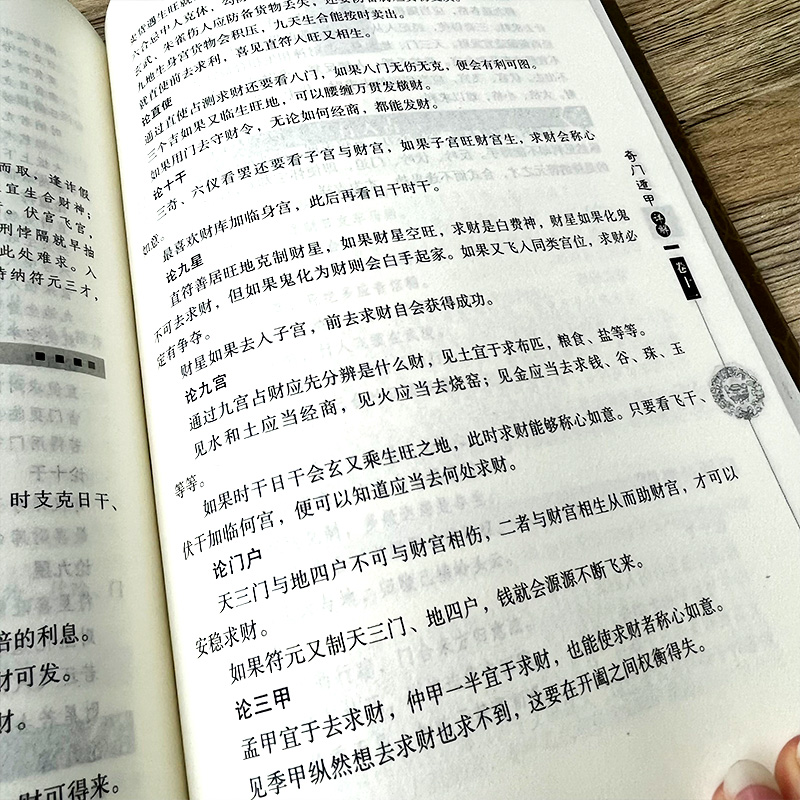 而取，逢诈假
宜生合财神；
伏官飞宫，
刑悖隔就早抽
此处难求。入
待纳符元三才，
时支克日干、
倍的利息。
财可发。
财。
财可得来。
玄武、朱雀伤人应防备货物丢失，
九地生身宫货物会积压，九天生合能按时卖出。
就直使前去求利，喜见直符入旺又相生。
论直使
通过直使占测求财还要看八门，如果八门无伤无克，便会有利可图。
三个吉如果又临生旺地，可以腰缠万贯发横财。
如果用门去守财令，无论如何经商，都能发财。
论十干
三奇、六仪看罢还要看子宫与财宫，如果子宫旺财宫生，求财会称心
如意。
最喜欢财库加临身宫，此后再看日干时干。
论九星
直符善居旺地克制财星，如果财星空旺，求财是白费神，财星如果化鬼
不可去求财，但如果鬼化为财则会白手起家。如果又飞人同类宫位，求财必
定有争夺。
财星如果去人子宫，前去求财自会获得成功。
论九宫
通过九宫占财应先分辨是什么财，见土宜于求布匹，粮食、盐等等。
见水和土应当经商，见火应当去烧窑；见金应当去求钱、谷、珠、玉
等等。
如果时干日干会玄又乘生旺之地，此时求财能够称心如意。只要看飞干、
伏干加临何宫，便可以知道应当去何处求财。
论门户
天三门与地四户不可与财宫相伤，二者与财宫相生从而助财宫，才可以
安稳求财。
如果符元又制天三门、地四户，钱就会源源不断飞来。
论三甲
孟甲宜于去求财，仲甲一半宜于求财，也能使求财者称心如意。
见季甲纵然想去求财也求不到，这要在开阖之间权衡得失。
奇门遁甲
详解
卷十